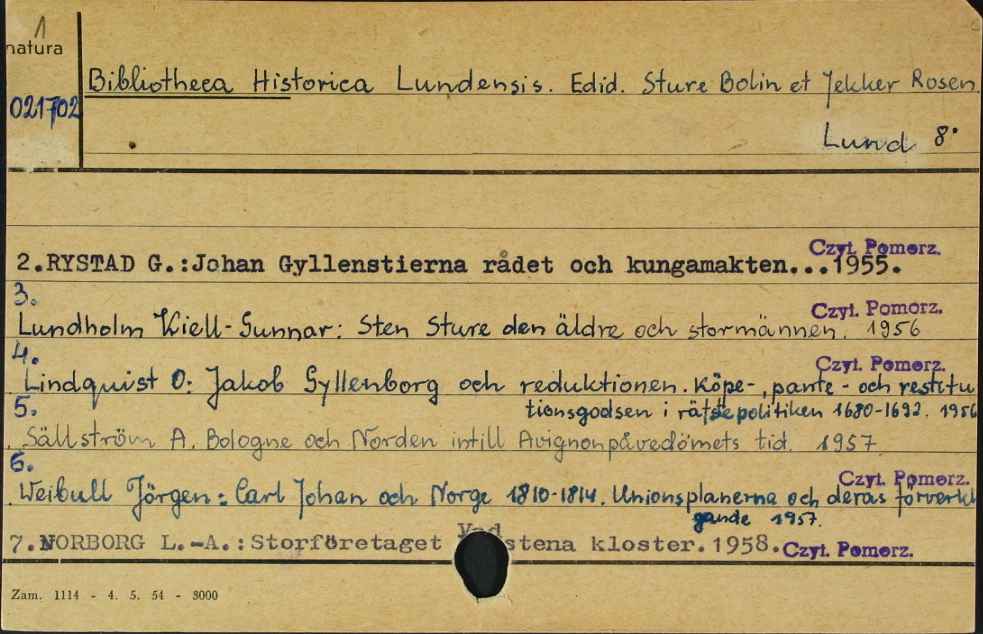 1
natura
021702
Bibliotheca Historica Lundensis. Edid. Sture Bolin et Jekker Rosen
Lund 8°
Czyt. Pomorz.
2.RYSTAD G.:Johan Gyllenstierna rådet och kungamakten...1955.
3.
Czyt. Pomorz.
Lundholm Kiell-Gunnar: Sten Sture den äldre och stormännen. 1956
4.
Czyt. Pomorz.
Lindquist O: Jakob Gyllenborg och reduktionen. Köpe-, pante- och restitu
tionsgodsen i räfstepolitiken 1680-1692. 1956
5.
Sällström A. Bologne och Norden intill Avignonpåvedömets tid. 1957
6.
Czyt. Pomorz.
Weibull Jörgen: Carl Johan och Norge 1810-1814. Unionsplanerna och deras förverkli
gande 1957.
7.NORBORG L.-A.:Storföretaget Vadstena kloster.1958. Czyt. Pomorz.
Zam. 1114 - 4. 5. 54 - 8000